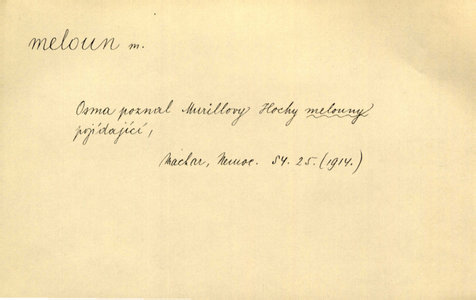 meloun m.
Osma poznal Murillovy Hochy melouny
pojídající,
Machar, Nemoc. 54. 25. (1914.)